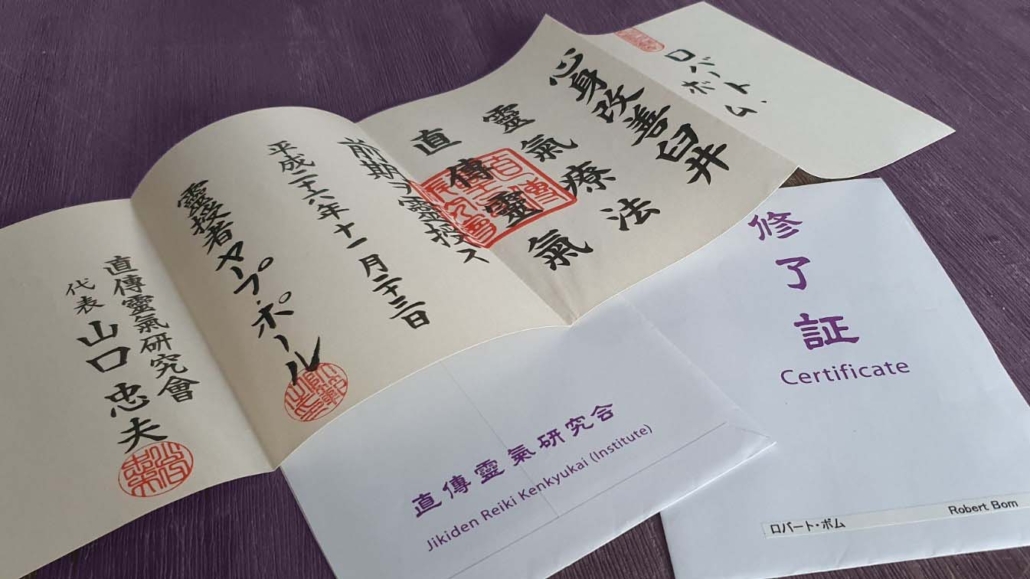 ロバート
ボム
心身改善臼井
靈氣療法
直傳靈氣
前期ヲ靈授ス
平成二十六年十一月二十三日
靈授者ヤープ・ポール
直傳靈氣研究會
代表 山口忠夫
直傳靈氣研究会
Jikiden Reiki Kenkyukai (Institute)
修了証
Certificate
ロバート・ボム Robert Bom